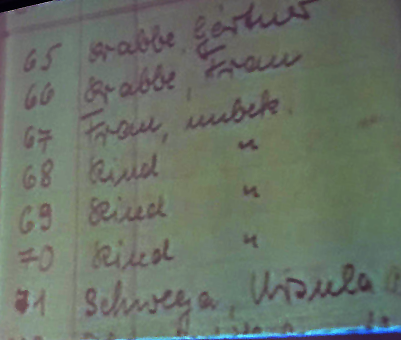 65 Krabbe, Gärtner
66 Krabbe, Frau
67 Frau, unbek.
68 Kind "
69 Kind "
70 Kind "
71 Schwega, Ursula